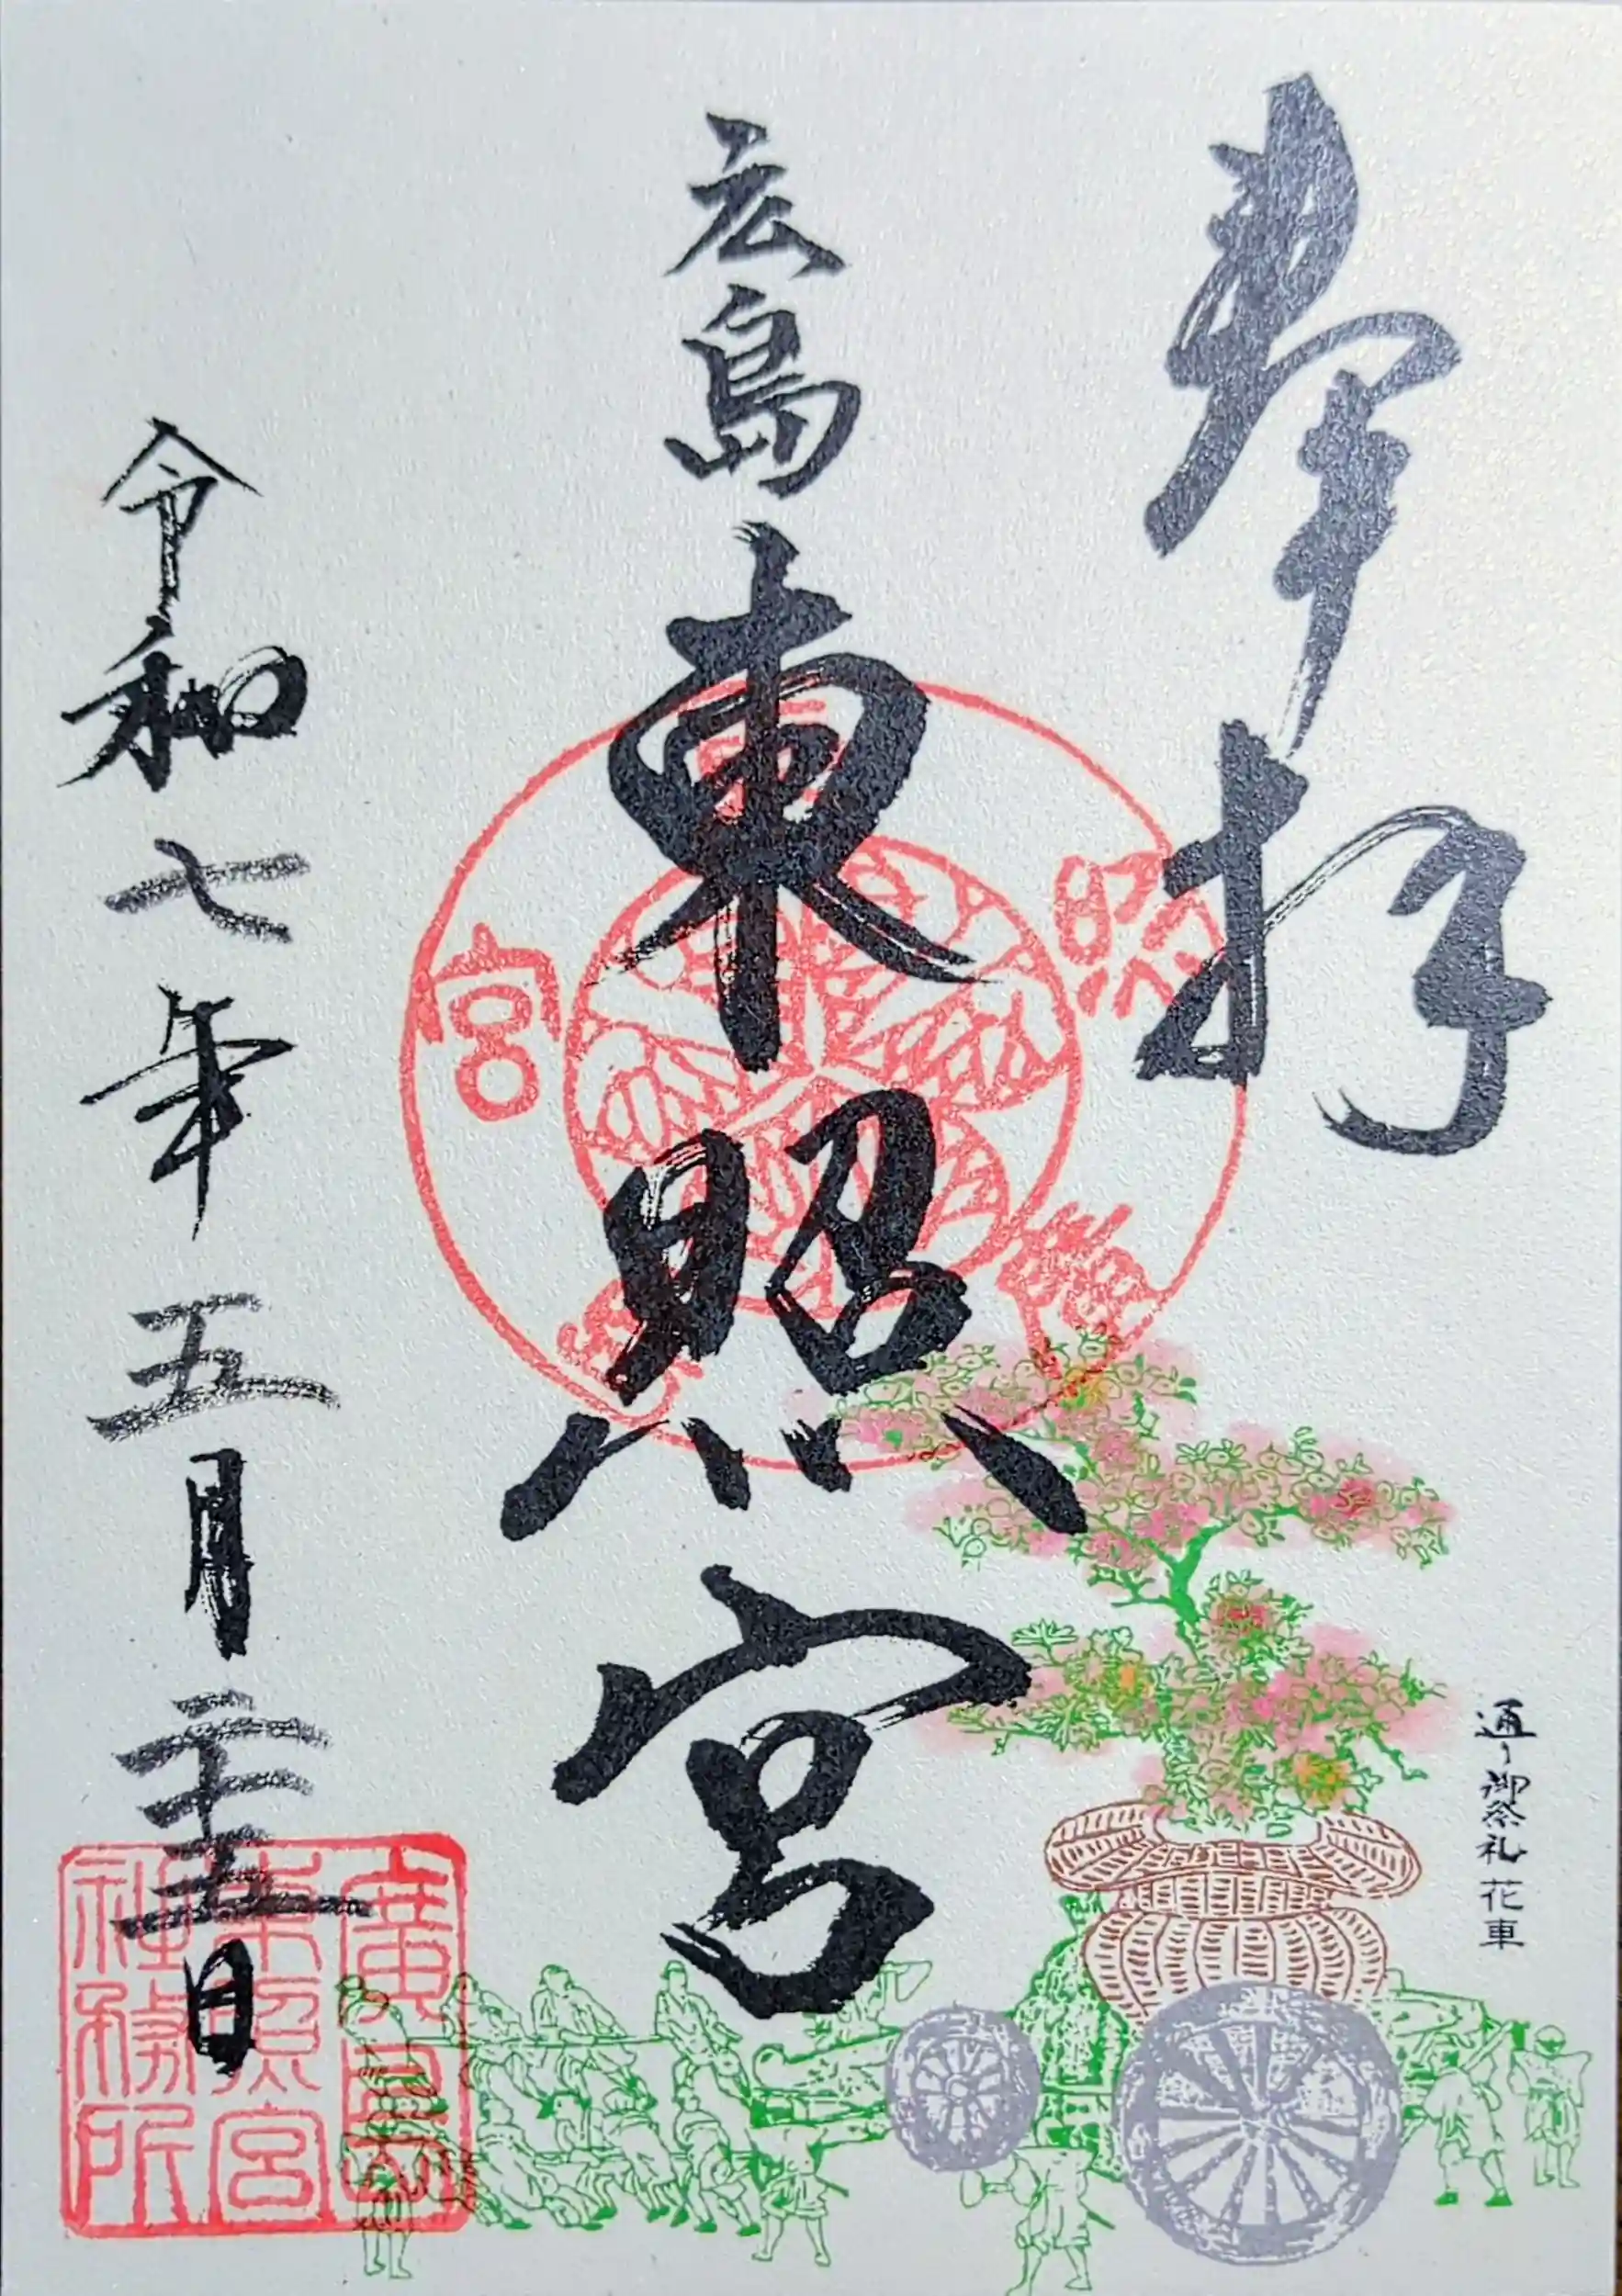 奉拝
通り御祭礼 花車
広島東照宮
令和七年五月二十五日
廣島
東照宮
社務所